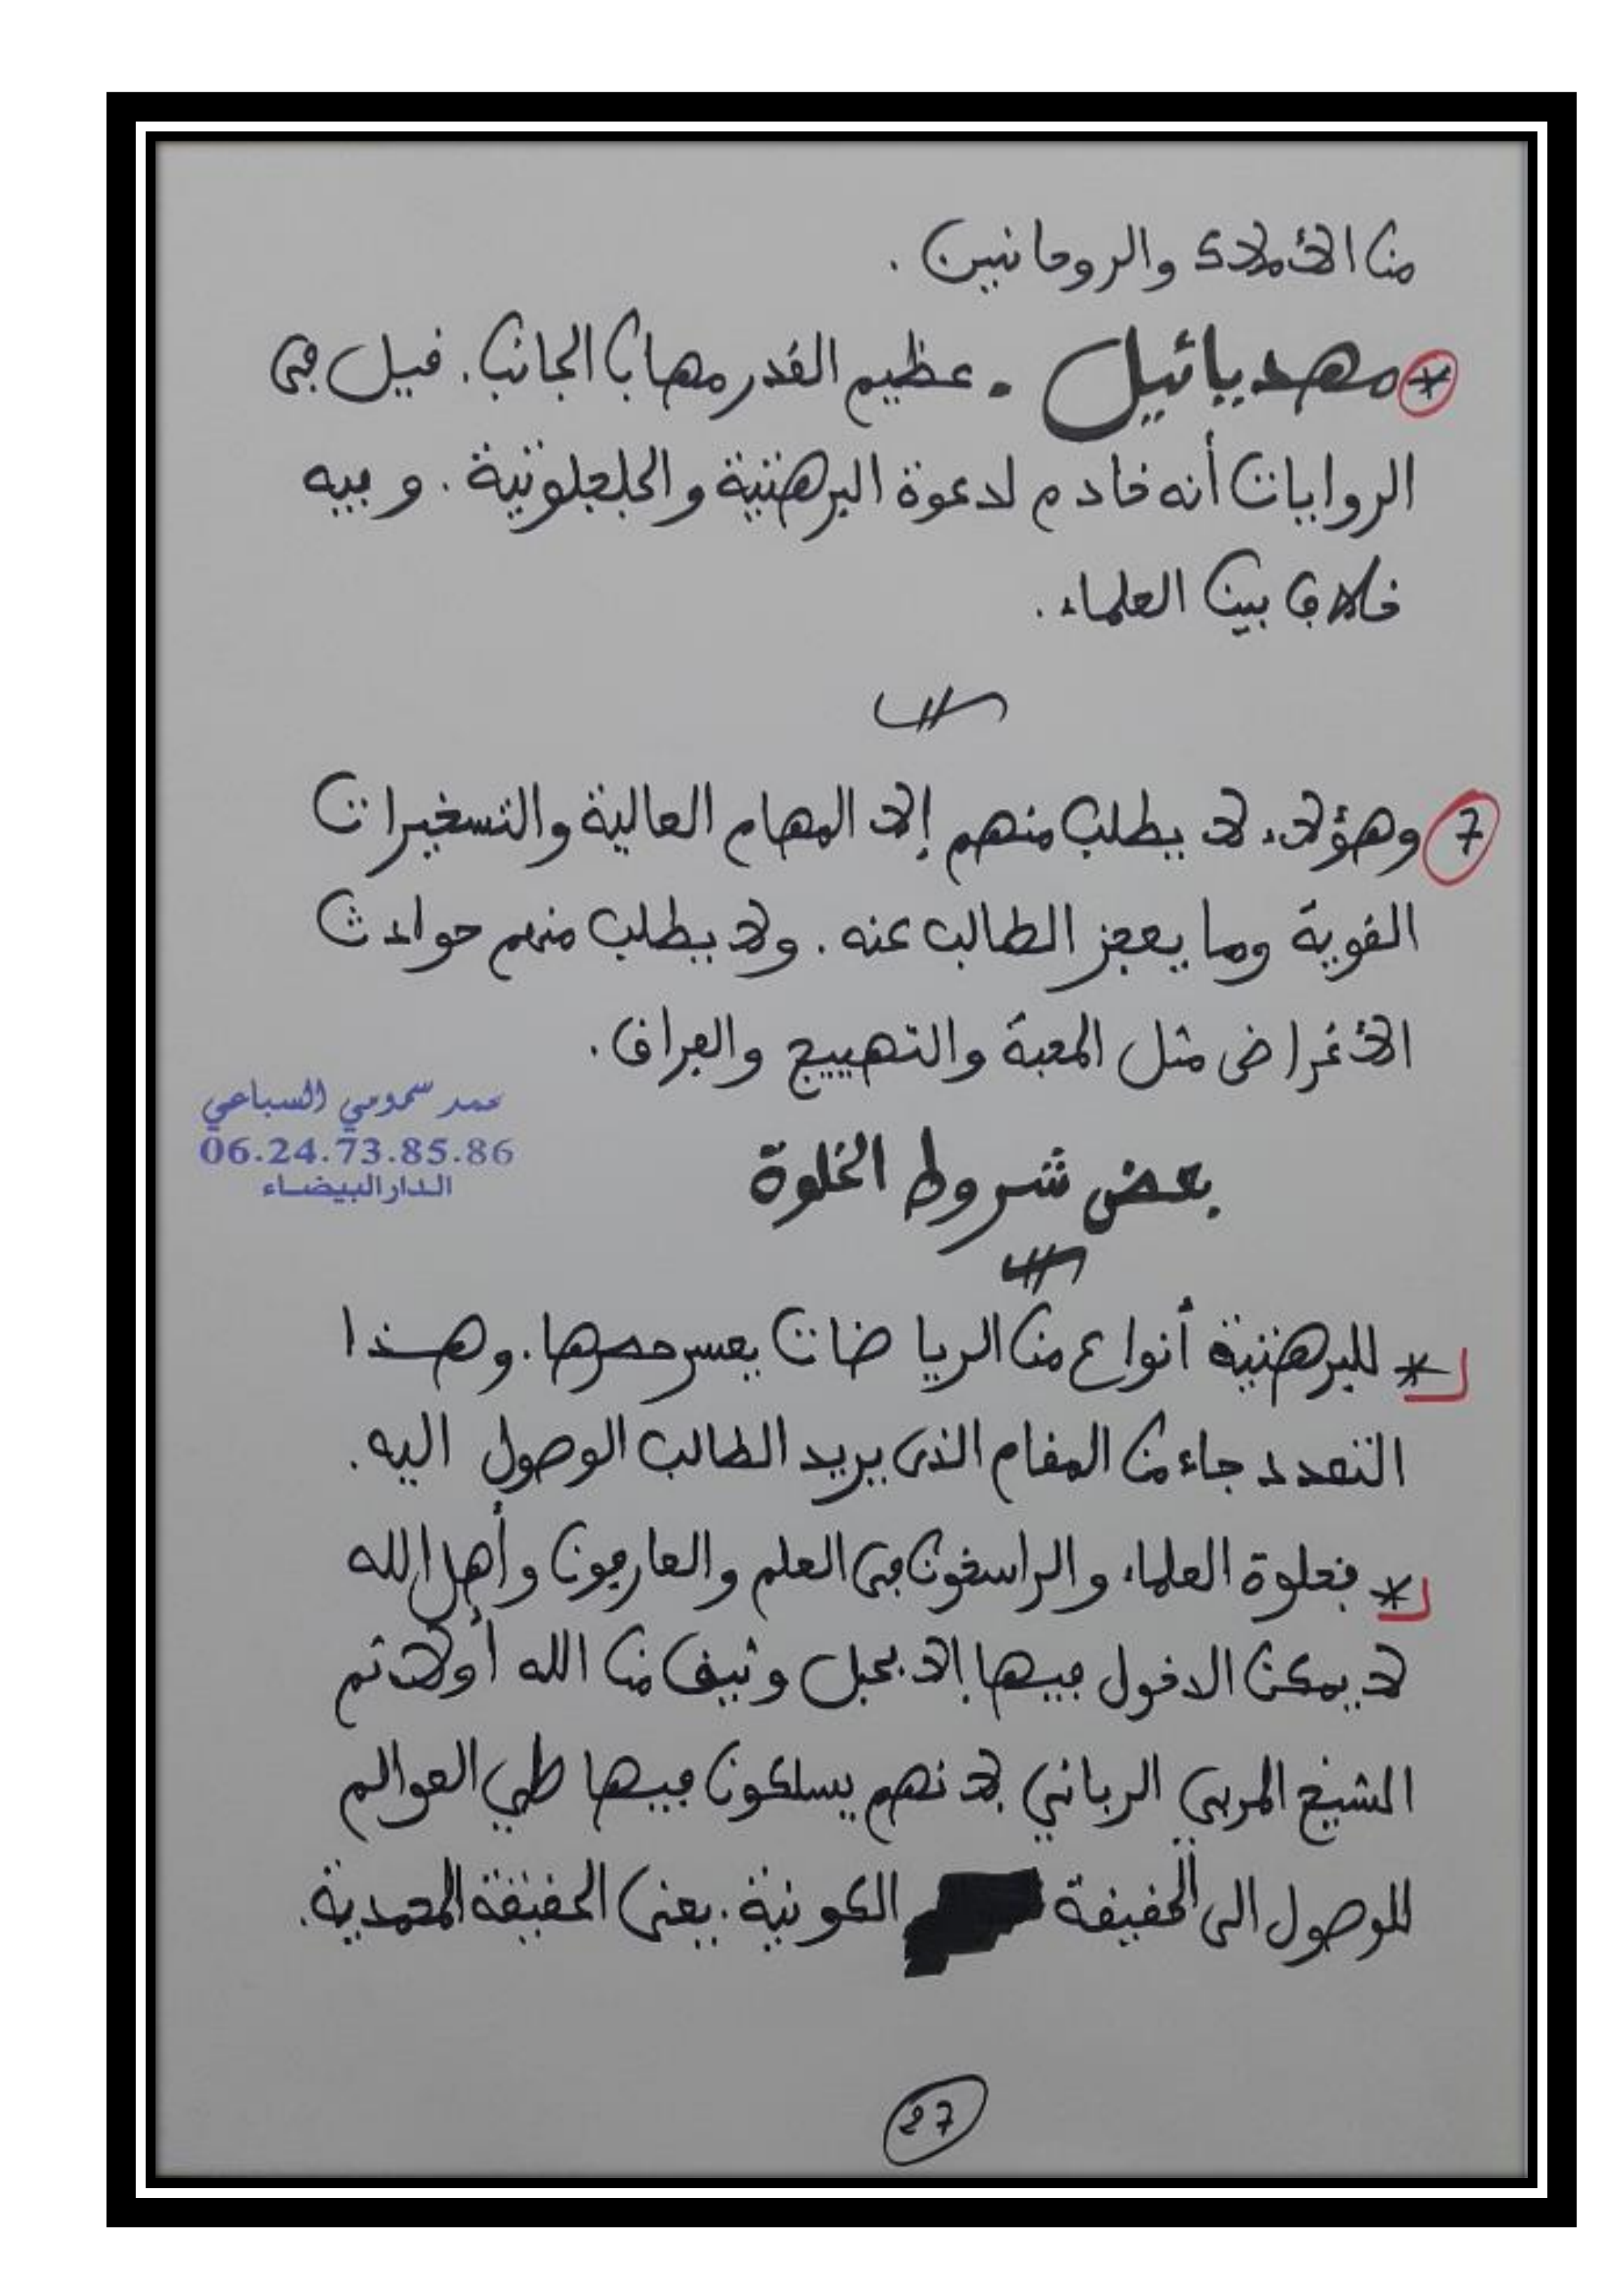 من الأملاك والروحانيين .
* مهديائيل . عظيم القدر مهاب الجانب . قيل في
الروايات أنه خادم لدعوة البرهتية والجلجلوتية . وفيه
خلاف بين العلماء .
7 وهؤلاء لا يطلب منهم إلا المهام العالية والتسخيرات
القوية وما يعجز الطالب عنه . ولا يطلب منهم حوادث
الأغراض مثل المحبة والتهييج والفراق .
محمد سمومي السباعي
06.24.73.85.86
الدار البيضاء
بعض شروط الخلوة
* للبرهتية أنواع من الرياضات يعسر حصرها . وهذا
التعدد جاء من المقام الذي يريد الطالب الوصول اليه .
* فخلوة العلماء والراسخون في العلم والعارفون وأهل الله
لا يمكن الدخول فيها إلا بحبل وثيق من الله أولا ثم
الشيخ المربي الرباني لأنهم يسلكون فيها طي العوالم
للوصول الى الحقيقة الكونية . يعني الحقيقة المحمدية .
27